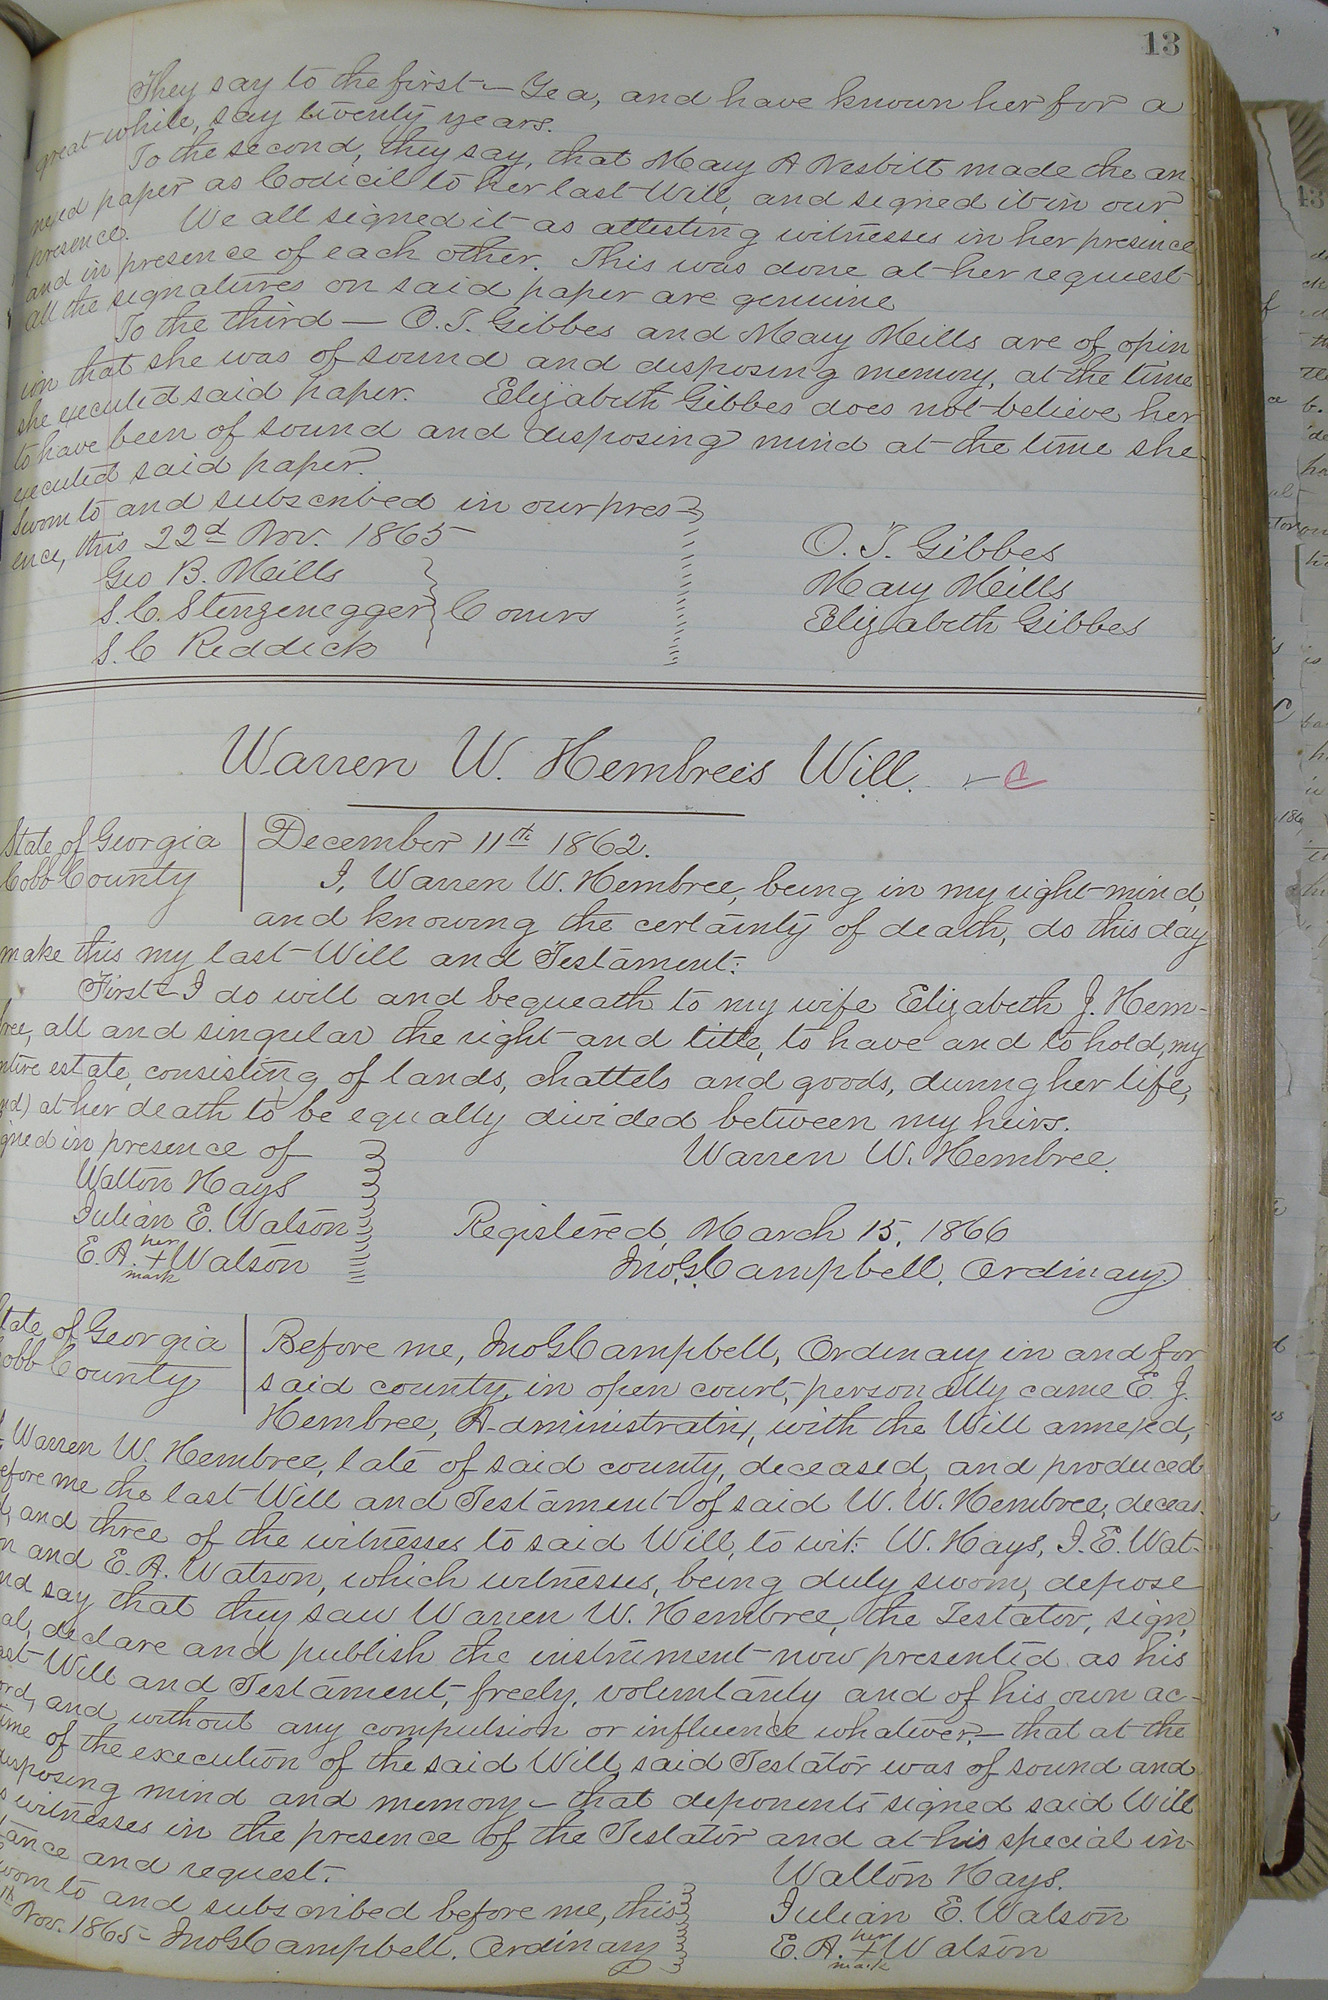 13
They say to the first — Yea, and have known her for a
great while, say twenty years.
To the second, they say, that Mary A Nesbitt made the an-
nexed paper as Codicil to her last Will, and signed it in our
presence. We all signed it as attesting witnesses in her presence
and in presence of each other. This was done at her request
all the signatures on said paper are genuine
To the third — O. T. Gibbes and Mary Mills are of opin
ion that she was of sound and disposing memory, at the time
she executed said paper. Elizabeth Gibbes does not believe her
to have been of sound and disposing mind at the time she
executed said paper.
Sworn to and subscribed in our pres-
ence, this 22d Nov. 1865
Geo B. Mills
S. C. Stengenegger Comrs
S. C Reddick
O. T. Gibbes
Mary Mills
Elizabeth Gibbes
Warren W. Hembree's Will.
State of Georgia
Cobb County
December 11th 1862.
I, Warren W. Hembree, being in my right mind,
and knowing the certainty of death, do this day
make this my last Will and Testament:
First I do will and bequeath to my wife Elizabeth J. Hem-
bree, all and singular the right and title, to have and to hold, my
entire estate, consisting of lands, chattels and goods, during her life,
and) at her death to be equally divided between my heirs.
Signed in presence of
Warren W. Hembree.
Walton Hays
Julian E. Watson
E. A. her + mark Watson
Registered, March 15, 1866
Jno G. Campbell, Ordinary
State of Georgia
Cobb County
Before me, Jno G Campbell, Ordinary in and for
said county, in open court, personally came E. J.
Hembree, Administratrix, with the Will annexed,
of Warren W. Hembree, late of said county, deceased, and produced
before me the last Will and Testament of said W. W. Hembree, deceas-
ed, and three of the witnesses to said Will, to wit: W. Hays, J. E. Wat-
son and E. A. Watson, which witnesses, being duly sworn, depose
and say that they saw Warren W. Hembree, the Testator, sign,
seal, declare and publish the instrument now presented as his
last Will and Testament, freely, voluntarily and of his own ac-
cord, and without any compulsion or influence whatever, — that at the
time of the execution of the said Will, said Testator was of sound and
disposing mind and memory — that deponents signed said Will
as witnesses in the presence of the Testator and at his special in-
stance and request.
Sworn to and subscribed before me, this
th Nov. 1865 - Jno G Campbell, Ordinary
Walton Hays.
Julian E. Watson
E. A. her + mark Watson